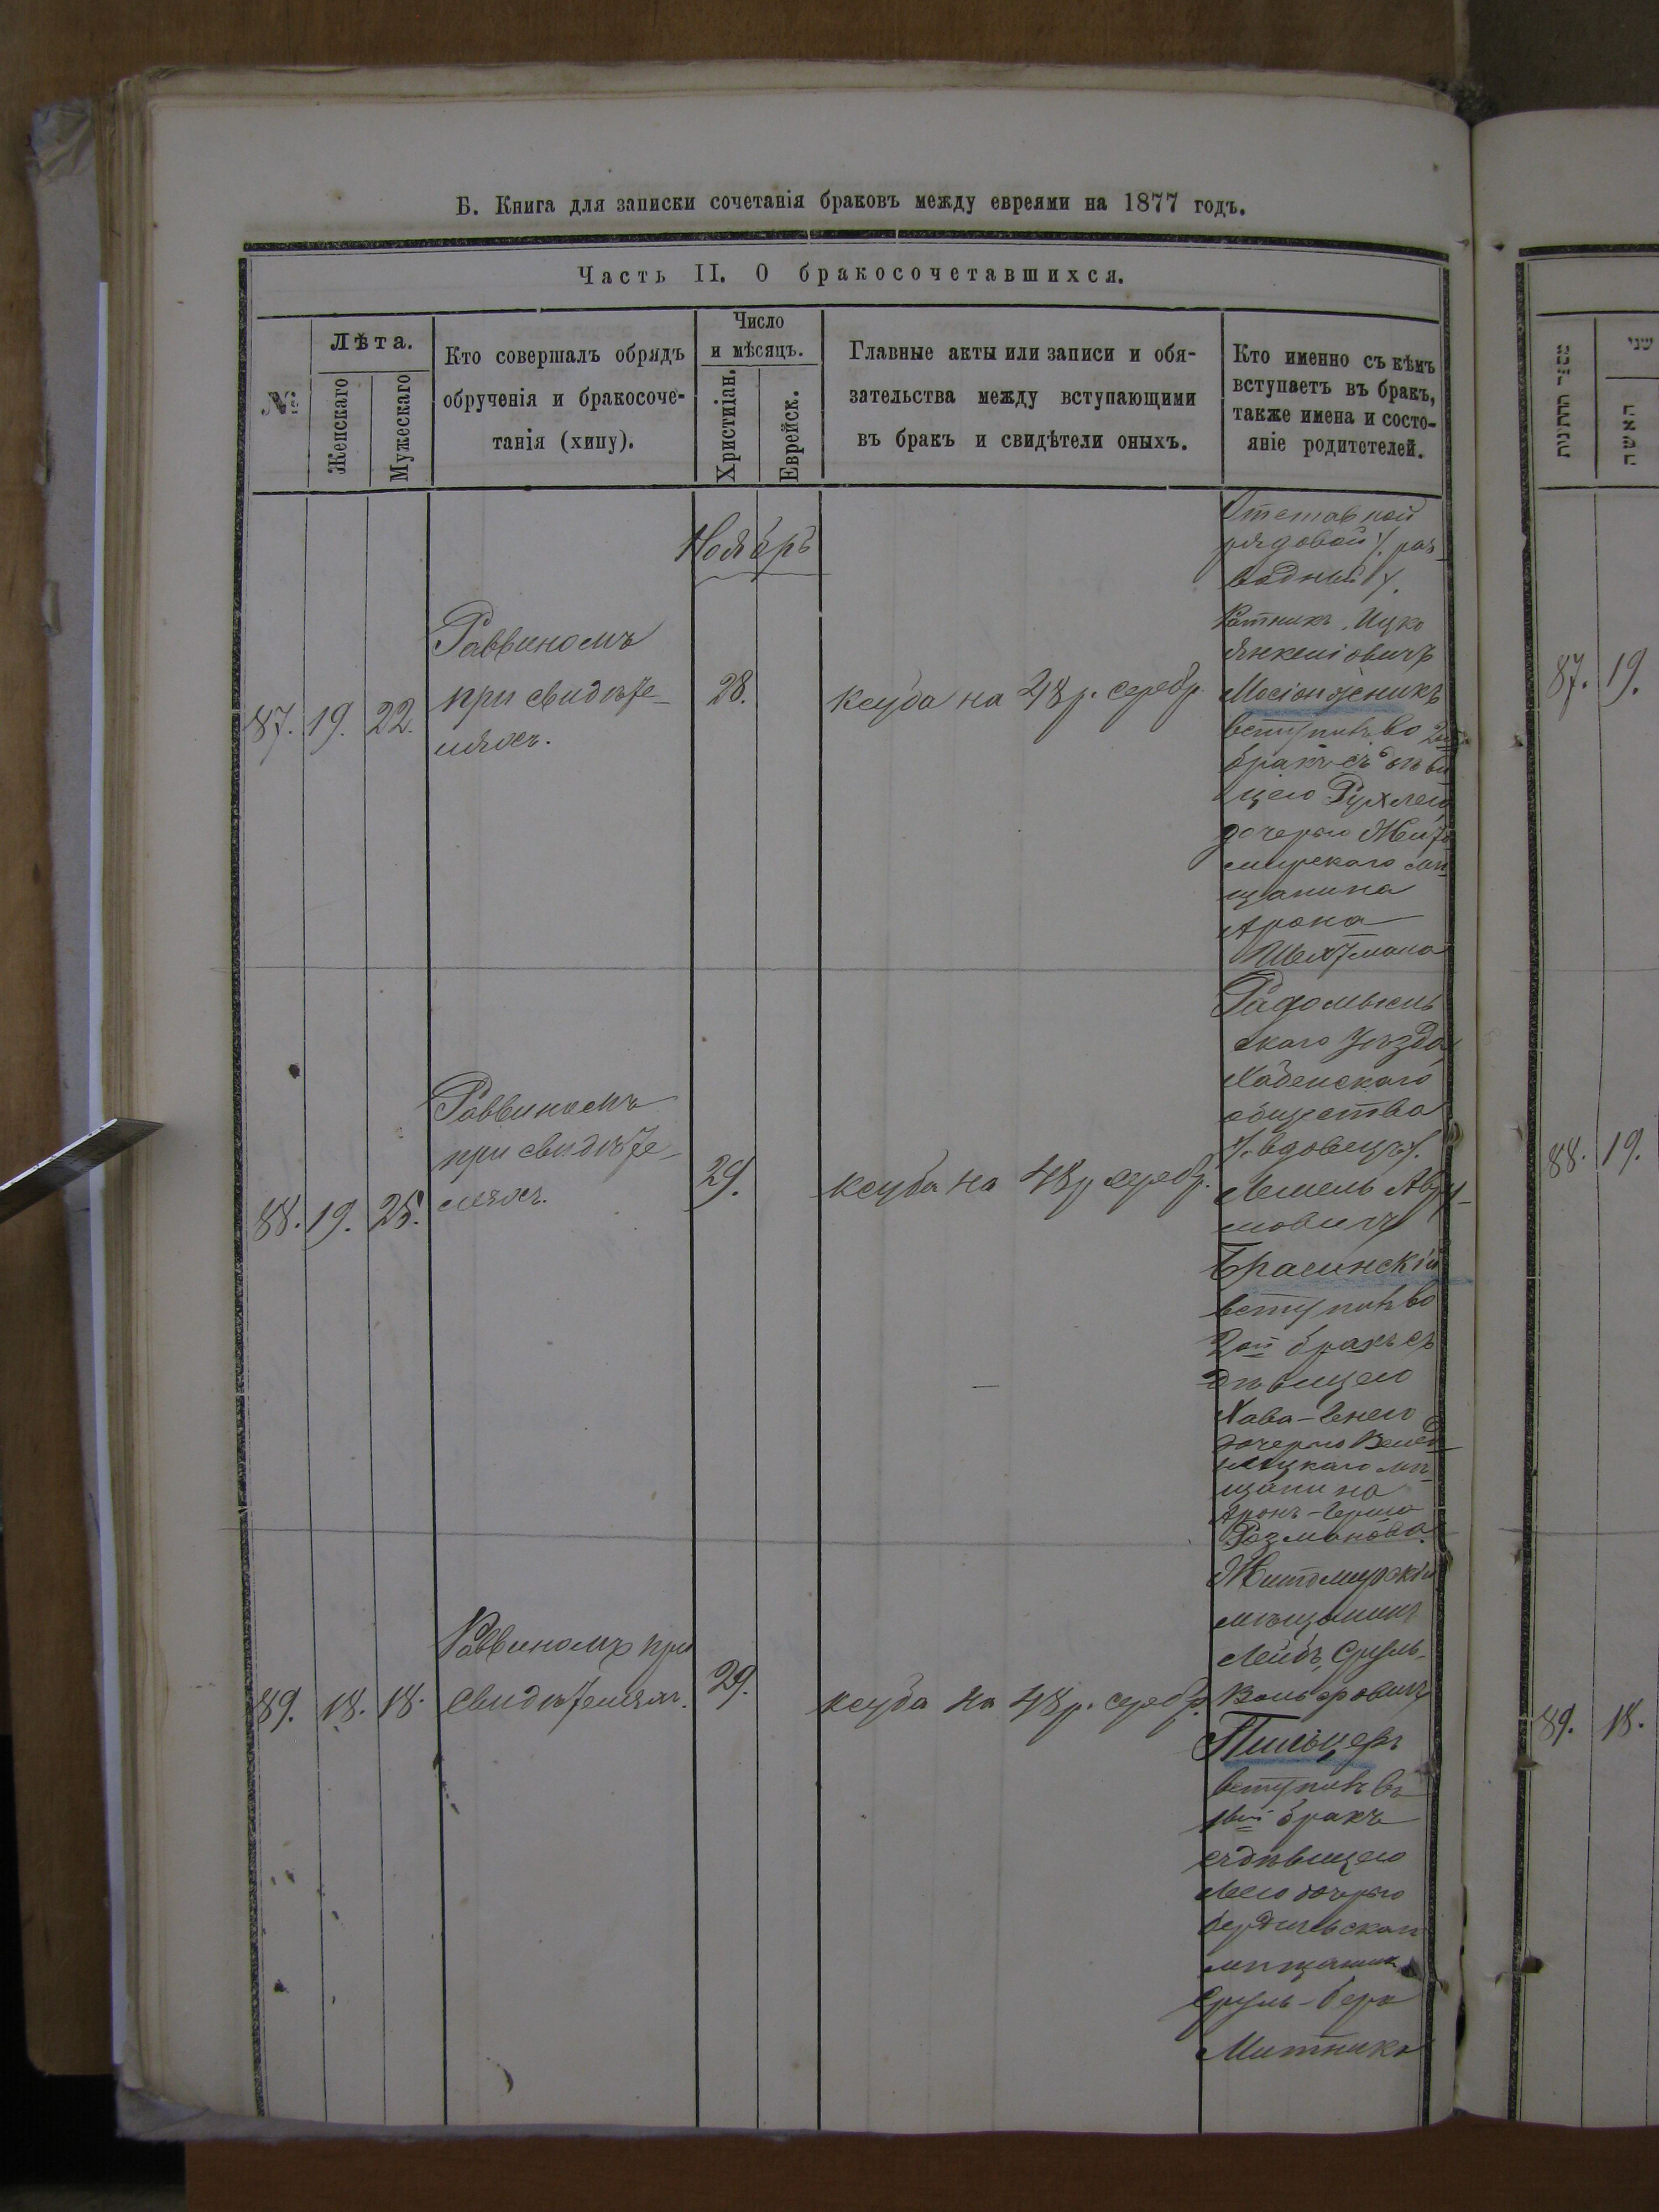 Б. Книга для записки сочетанія браковъ между евреями на 1877 годъ.
Часть II. О бракосочетавшихся.
№
Лѣта.
Женскаго
Мужескаго
Кто совершалъ обрядъ
обрученія и бракосоче-
танія (хипу).
Число
и мѣсяцъ.
Христиан.
Еврейск.
Главные акты или записи и обя-
зательства между вступающими
въ бракъ и свидѣтели оныхъ.
Кто именно съ кѣмъ
вступаетъ въ бракъ,
также имена и состо-
яніе родитетелей.
Ноябрь
87. 19. 22.
Раввиномъ
при свидѣте-
ляхъ.
28.
ксуба на 48 р. серебр.
Отставной
рядовой /. раз
водный /.
Ицко
Янкеліовичъ
вступилъ во 2й
бракъ съ дѣви
цею Рухлею
дочерью Жито
мирскаго мѣ
щанина
Арона
Шехтмана
88. 19. 25.
Раввиномъ
при свидѣте-
ляхъ.
29.
ксуба на 48 р серебр.
Радомысль
скаго Уѣзда
Хабенскаго
общества
/. вдовецъ /.
Лемель Авру-
мовичъ
Брасинскій
вступилъ во
2ой бракъ съ
дѣвицею
Хава-Генею
дочерью
мѣ-
щанина
Аронъ-Герша
Розманова.
89. 18. 18.
Раввиномъ при
свидѣтеляхъ.
29.
ксуба на 48 р. серебр.
Житомирскій
мѣщанинъ
Лейбъ, Сруль-
Вольфовичъ
Пильцеръ
вступилъ въ
1вый бракъ
съ дѣвицею
Леею дочерью
бердичевскаго
мѣщанина
Сруль-Бера
Митника
מספר החתונה
שני
האשה
87. 19.
88. 19.
89. 18.